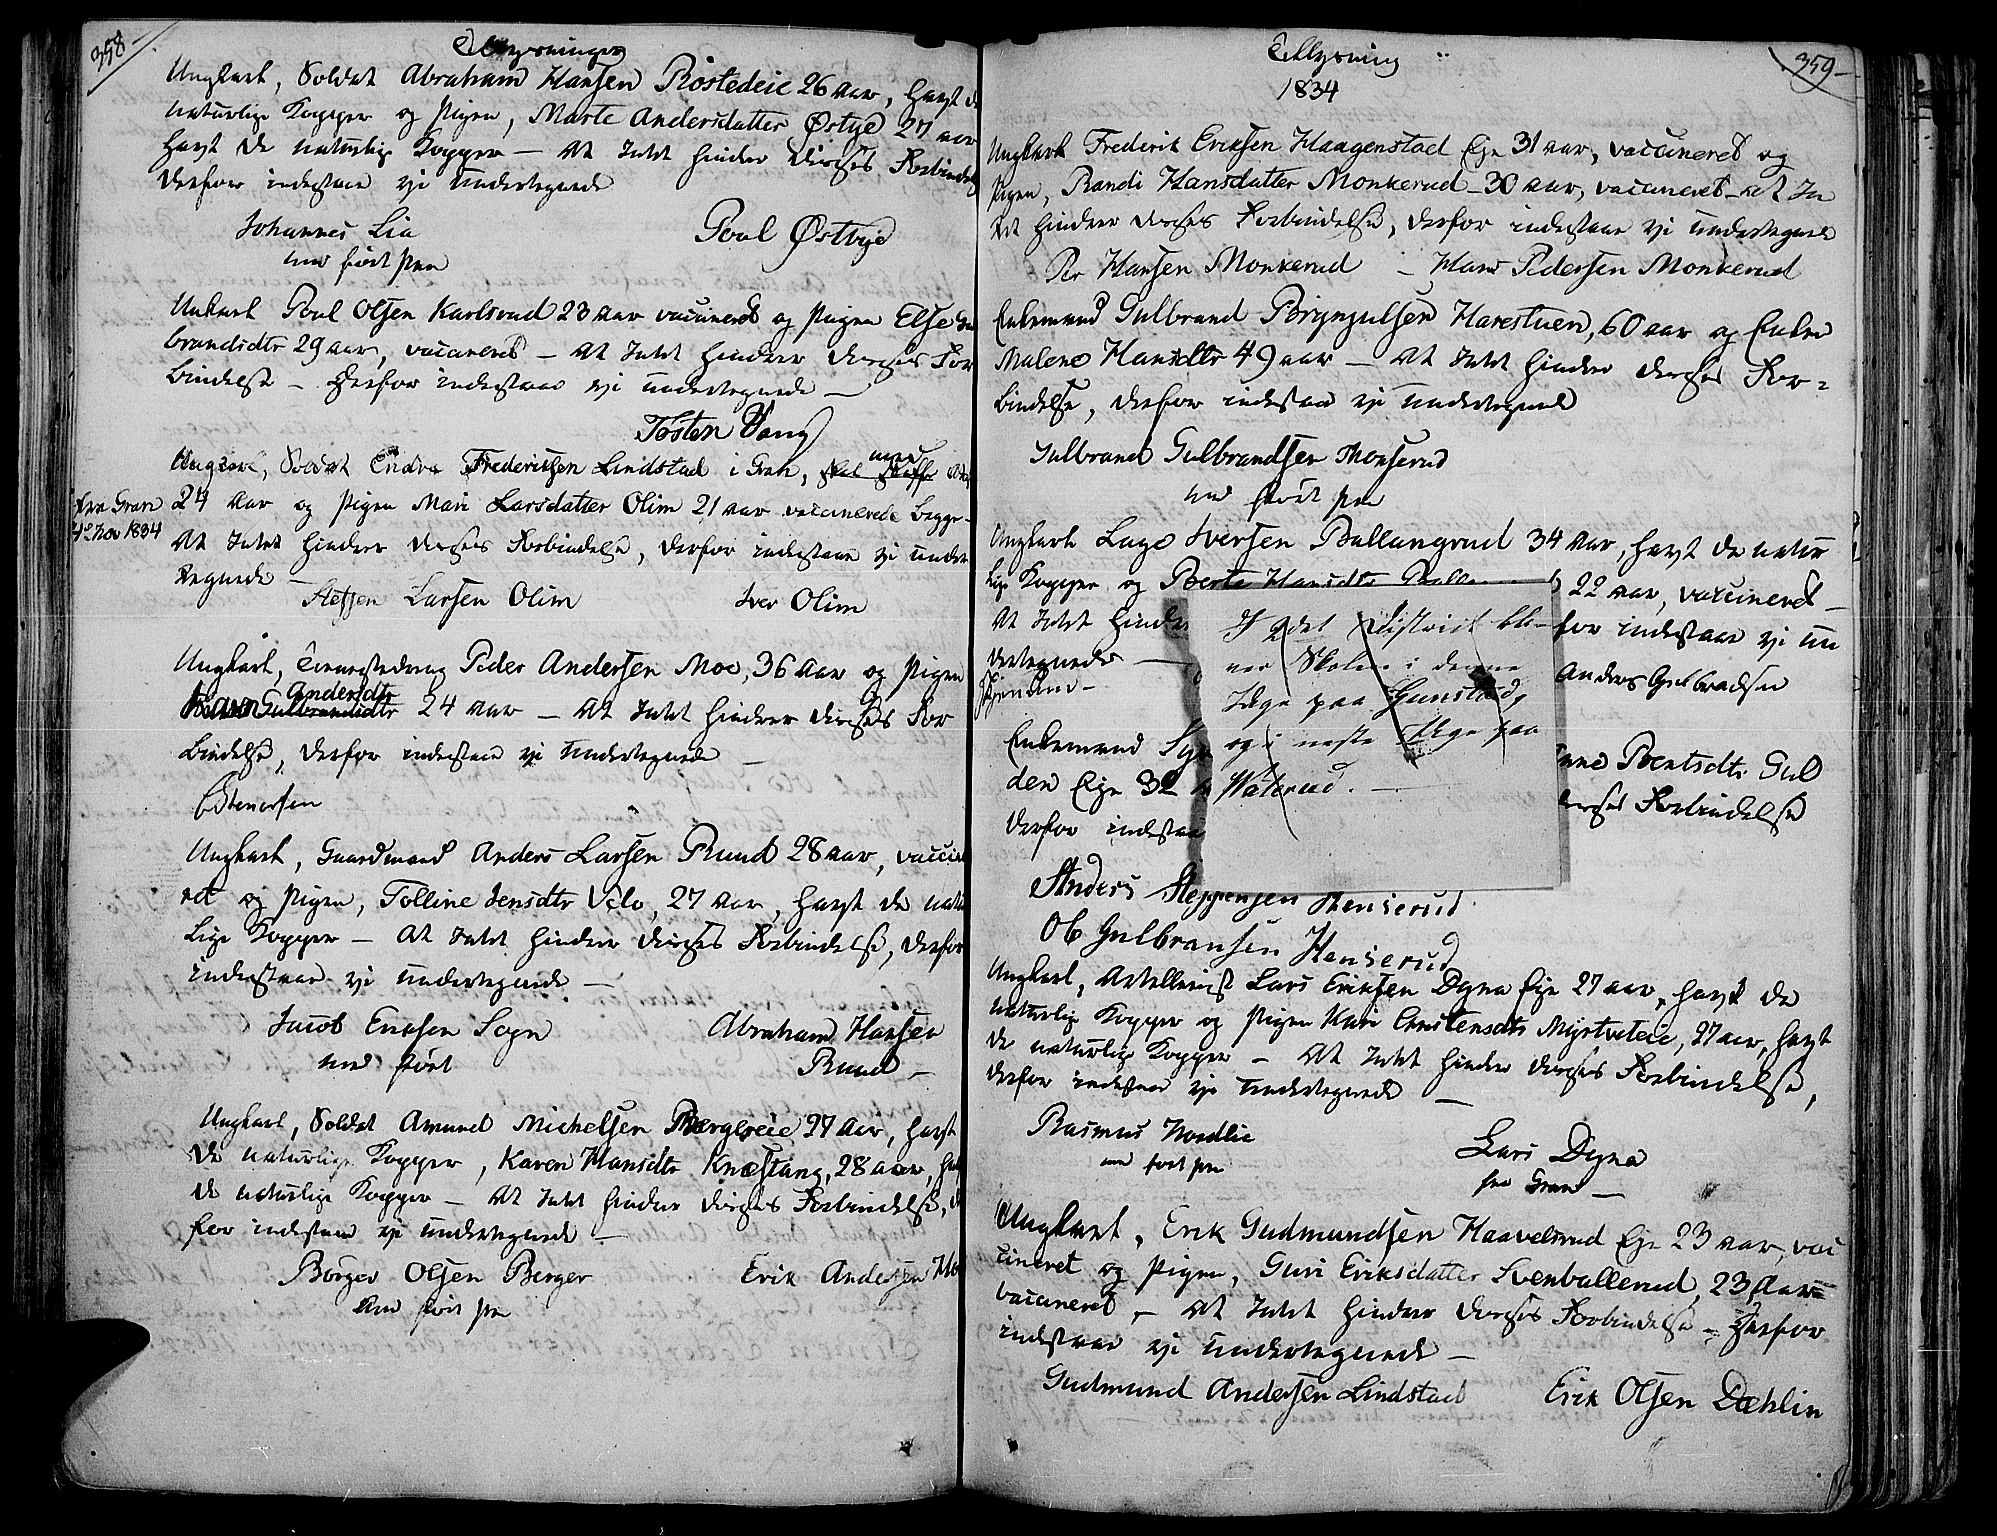 358
Tillysninger
Ungkarl, Soldat Abraham Hansen Röstedeie 26 aar, havt d
naturlige Kopper og Pigen, Marte Andersdatter Østbye 27 aar
havt de naturlige Kopper – At Intet hindrer deres Forbindels
derfor indestaae vi undertegnede
Johannes Lia Poul Østbye
med ført Pen
Unkarl Poul Olsen Karlsrud 23 aar vaccineret og Pigen Else Gul
brandsdtr 29 aar, vaccineret – At Intet hindrer deres For
bindelse – Herfor indestaae vi undertegnede –
Tosten Vang
Ungkarl, Soldat Endre Frederiksen Lindstad i Gran, med
24 aar og Pigen Mari Larsdatter Olim 21 aar vaccinerede begge –
fra Gran
4de Nov 1834
At Intet hindrer deres Forbindelse, derfor indestaae vi under
tegnede –
Steffen Larsen Olim Iver Olim
Ungkarl, Tienestedreng Peder Andersen Moe, 36 aar og Pigen
Andersdtr
Karen Gulbrandsdtr 24 aar – At Intet hindrer deres For
bindelse, derfor indestaae vi undertegnede –
Stenersen
Ungkarl, Gaardmand Anders Larsen Rund 28 aar, vaccin
ret og Pigen, Tolline Jensdtr Velo, 27 aar, havt de natur
lige Kopper – At Intet hindrer deres Forbindelse, derfor
indestaae vi undertegnede –
Jacob Ericksen Sogn Abraham Hansen
med ført Rund –
Ungkarl, Soldat Amund Michelsen Bergereie 27 aar, havt
de naturlige Kopper, Karen Hansdtr Knæstang, 28 aar, hav
de naturlige Kopper – At Intet hindrer deres Forbindelse, d
for indestaae vi undertegnede –
Börger Olsen Berger Erik Andersen Mo
med ført Pen
359
Tillysning
1834
Ungkarl Frederik Eriksen Haagenstad Eje 31 aar, vaccineret og
Pigen, Randi Hansdatter Monkerud – 30 aar, vaccineret – At In
tet hindrer deres Forbindelse, derfor indestaae vi undertegnede
Per Hansen Monkerud – Hans Pedersen Monkerud
Enkemand Gulbrand Bryngulsen Harestuen, 60 aar og Enken
Malene Hansdtr 49 aar – At Intet hindrer deres For-
bindelse, derfor indestaae vi undertegnede
Gulbrand Gulbrandsen Monserud
med ført Pen
Ungkarl Lage Iversen Ballangrud 34 aar, havt de natur
lige Kopper og Berte Hansdtr 22 aar, vaccineret –
At Intet hindre for indestaae vi un
dertegnede – Anders Gulbradsen
I 2det District bli-
ver Skolen i denne
Uge paa Gunstad,
og i neste Uge paa
Waterud. –
Enkemand nne Bentsdtr Gul
den Eje 32 deres Forbindelse
derfor indestaa
Anders Steffensen Henserud
Ole Gulbransen Henserud
Ungkarl, Artellerist Lars Eriksen Dyna Eje 27 aar, havt de
naturlige Kopper og Pigen Kari Christensdtr Myrtveteie, 27 aar, havt
de naturlige Kopper – At Intet hindrer deres Forbindelse,
derfor indestaae vi undertegnede –
Rasmus Nordlie Lars Dyna
med ført Pen fra Gran –
Ungkarl, Erik Gudmundsen Haavelsrud Eje 23 aar, vac
cineret og Pigen, Guri Eriksdatter Svenballerud, 23 aar
vaccineret, – At Intet hindrer deres Forbindelse – Herfor
indestaae vi undertegnede –
Gudmund Andersen Lindstad Erik Olsen Dæhlin